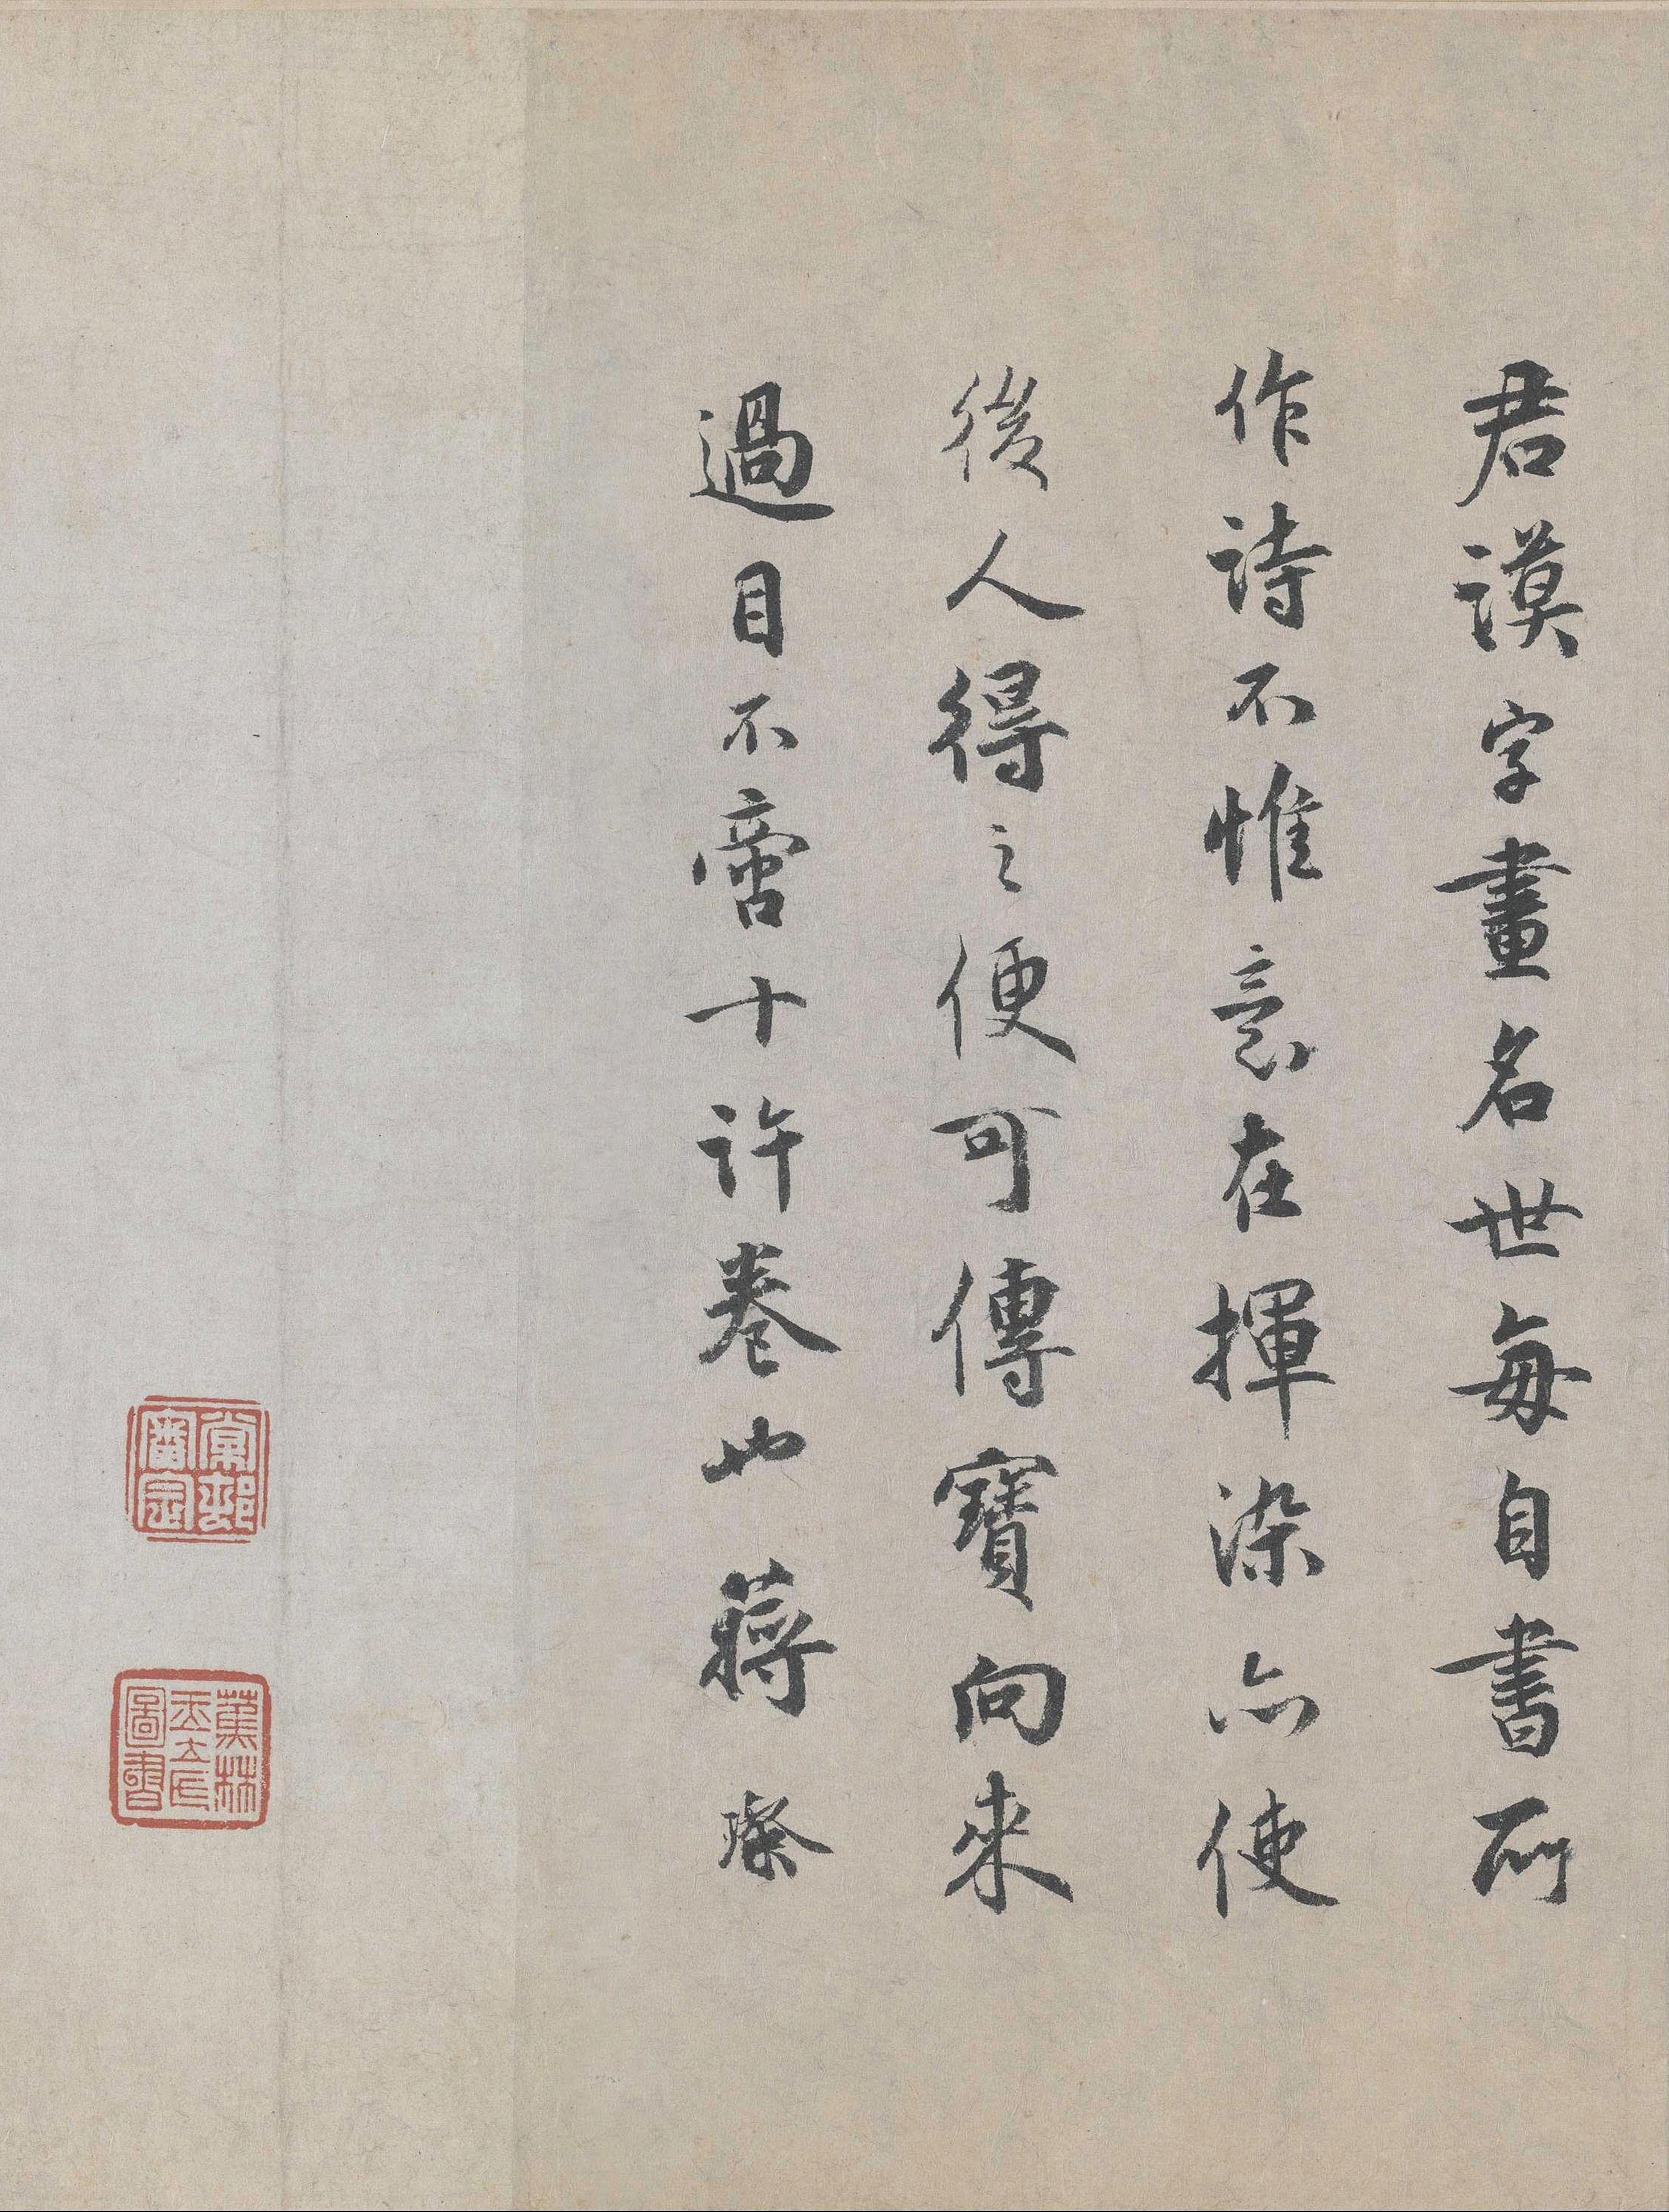 君謨字畫名世每自書所
作詩不惟意在揮染亦使
後人得之便可傳寶向來
過目不啻十許卷也蔣璨
棠邨審定
蕉林玉立氏圖書